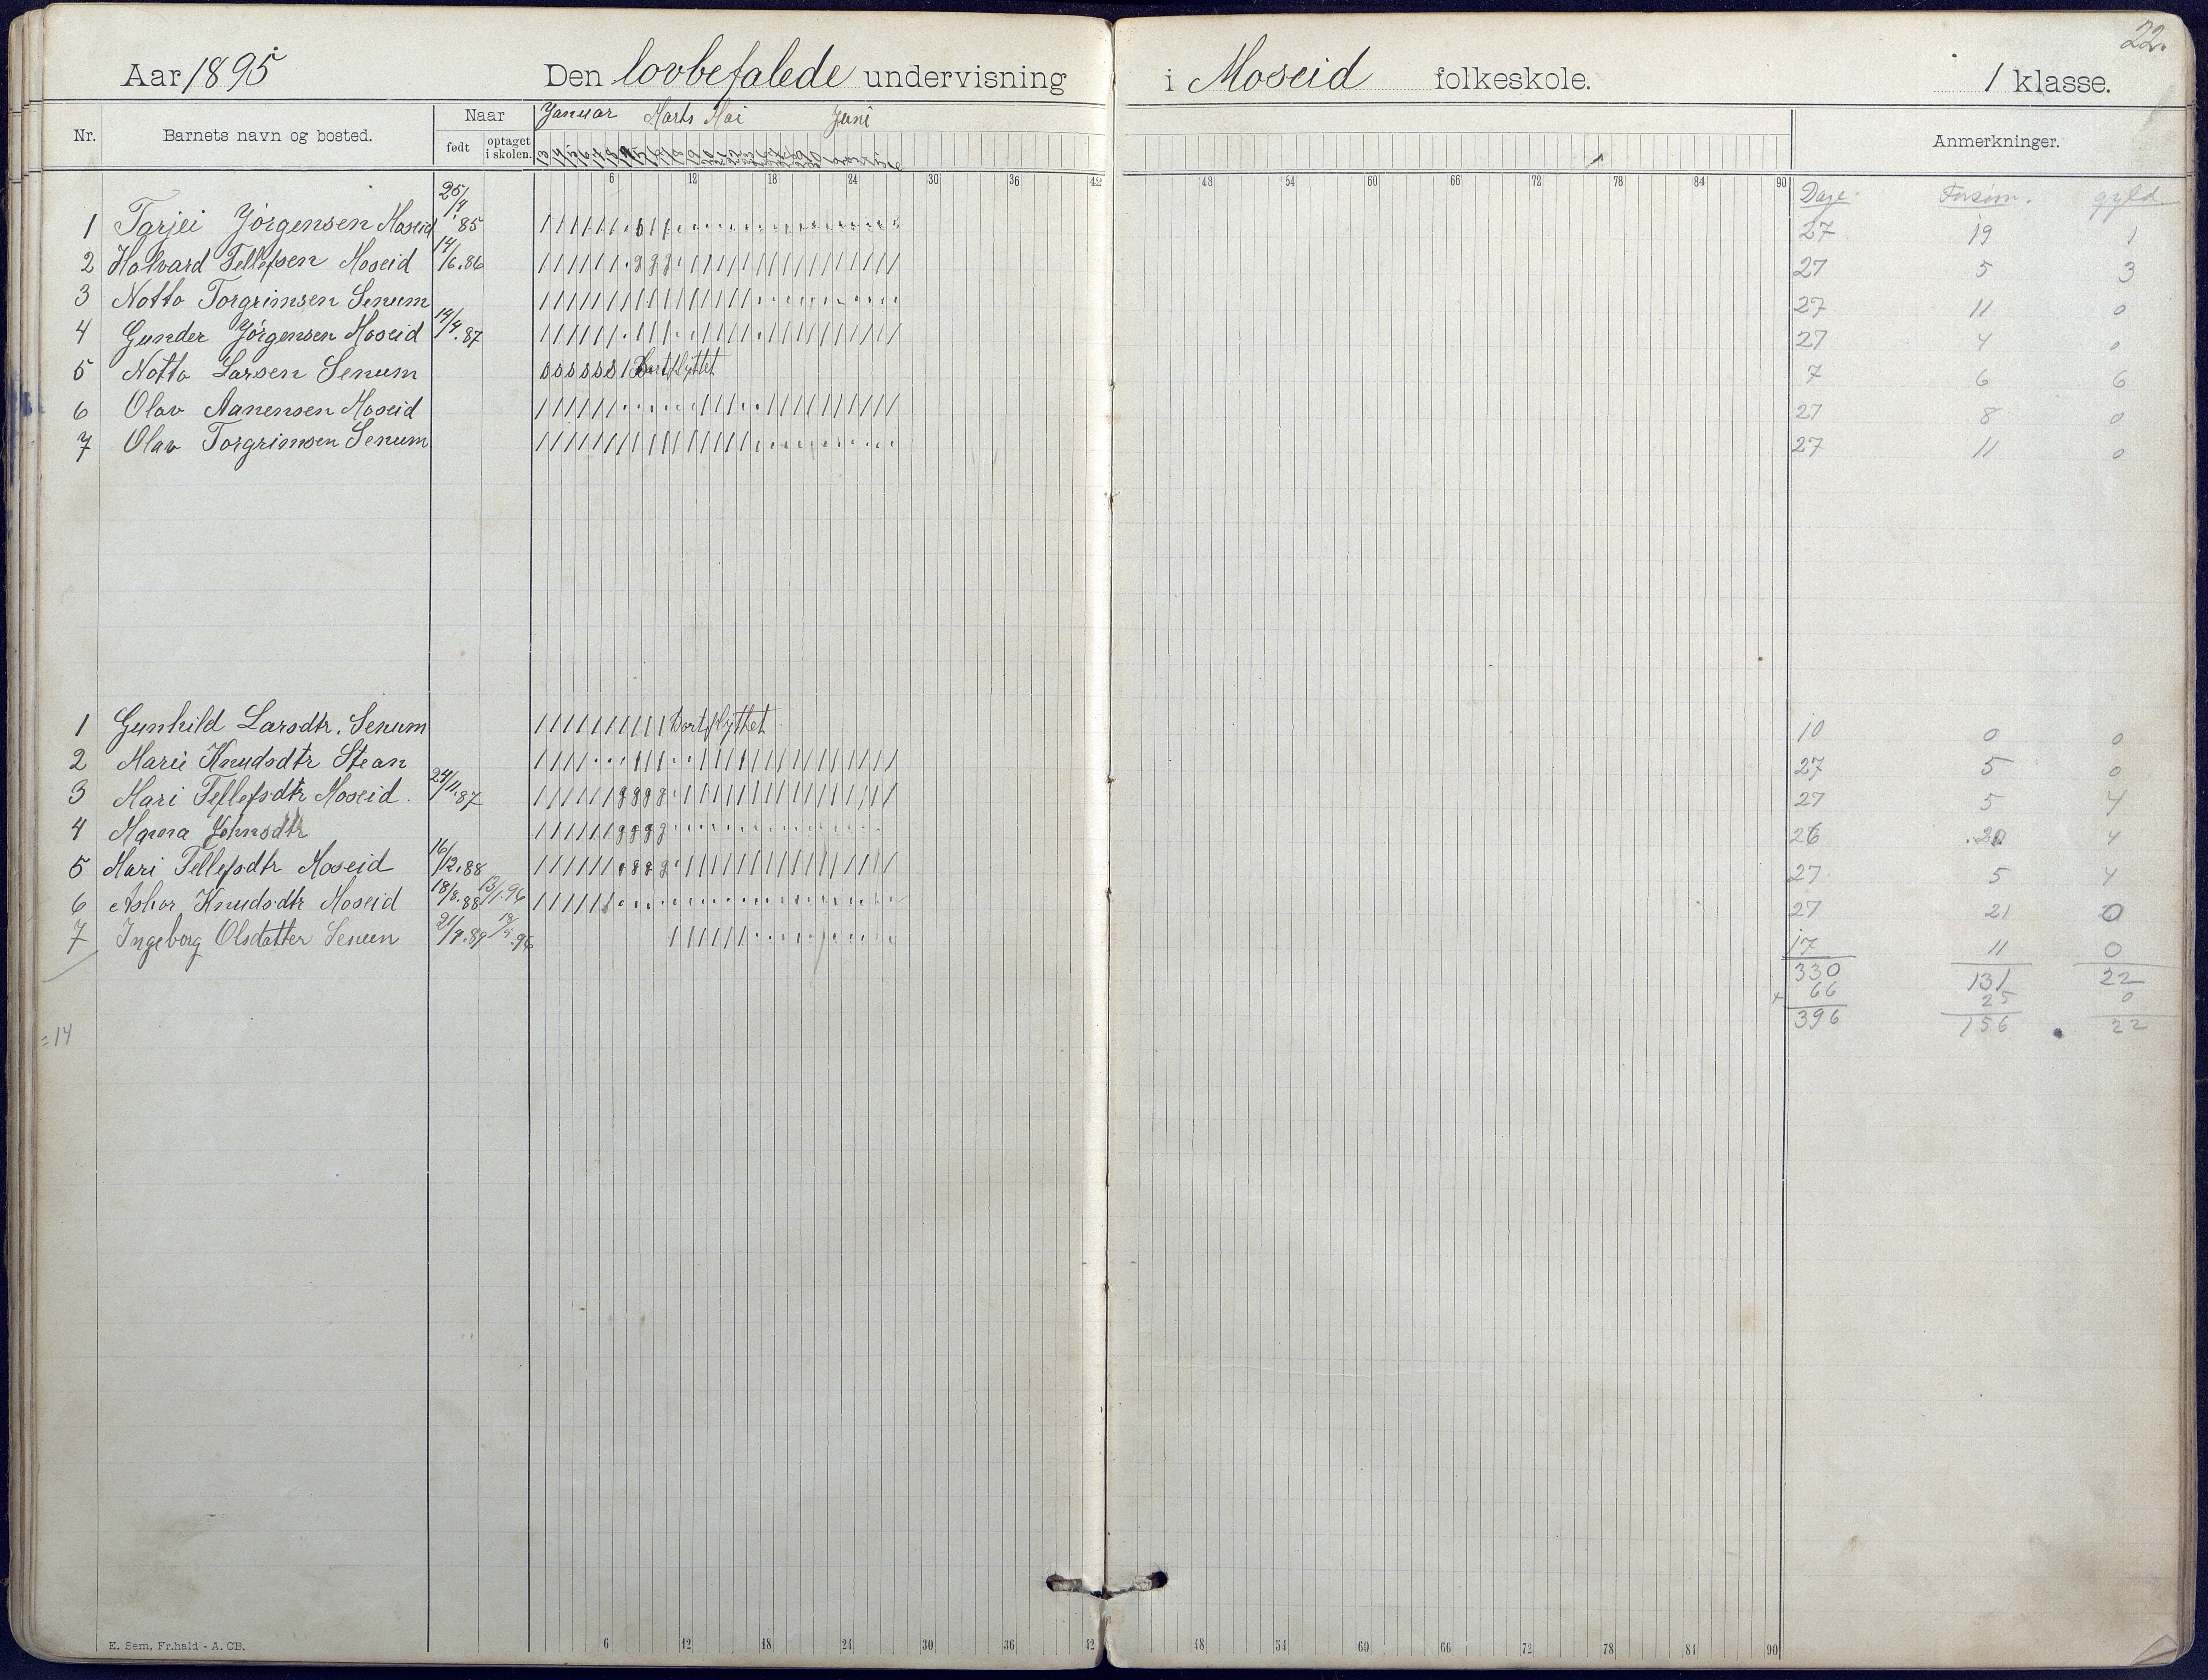 22.
Aar 1895 Den lovbefalede undervisning i Moseid folkeskole. 1 klasse.
Nr. Barnets navn og bosted. Naar født optaget i skolen. Januar Marts Mai Juni Anmerkninger.
6 12 18 24 30 36 42 48 54 60 66 72 78 84 90
Dage Forsøm. gyld.
1 Tarjei Jørgensen Moseid 25/4 85 27 19 1
2 Halvard Tellefsen Moseid 14/6.86 27 5 3
3 Notto Torgrimsen Senum 27 11 0
4 Gunder Jørgensen Moseid 14/4.87 27 4 0
5 Notto Larsen Senum Bortflyttet 7 6 6
6 Olav Aanensen Moseid 27 8 0
7 Olav Torgrimsen Senum 27 11 0
1 Gunhild Larsdtr. Senum Bortflyttet 10 0 0
2 Marie Knudsdtr Stean 27 5 0
3 Mari Tellefsdtr Moseid. 24/11.87 27 5 4
4 Johnsdtr 26 20 4
5 Mari Tellefsdtr Moseid 16/12.88 27 5 4
6 Knudsdtr Moseid 18/8.88 13/1.96 27 21 0
7 Ingeborg Olsdatter Senum 21/9.89 .96 17 11 0
330 131 22
+ 66 25 0
396 156 22
=14
E. Sem, Fr.hald - A. CB.
6 12 18 24 30 36 42 48 54 60 66 72 78 84 90